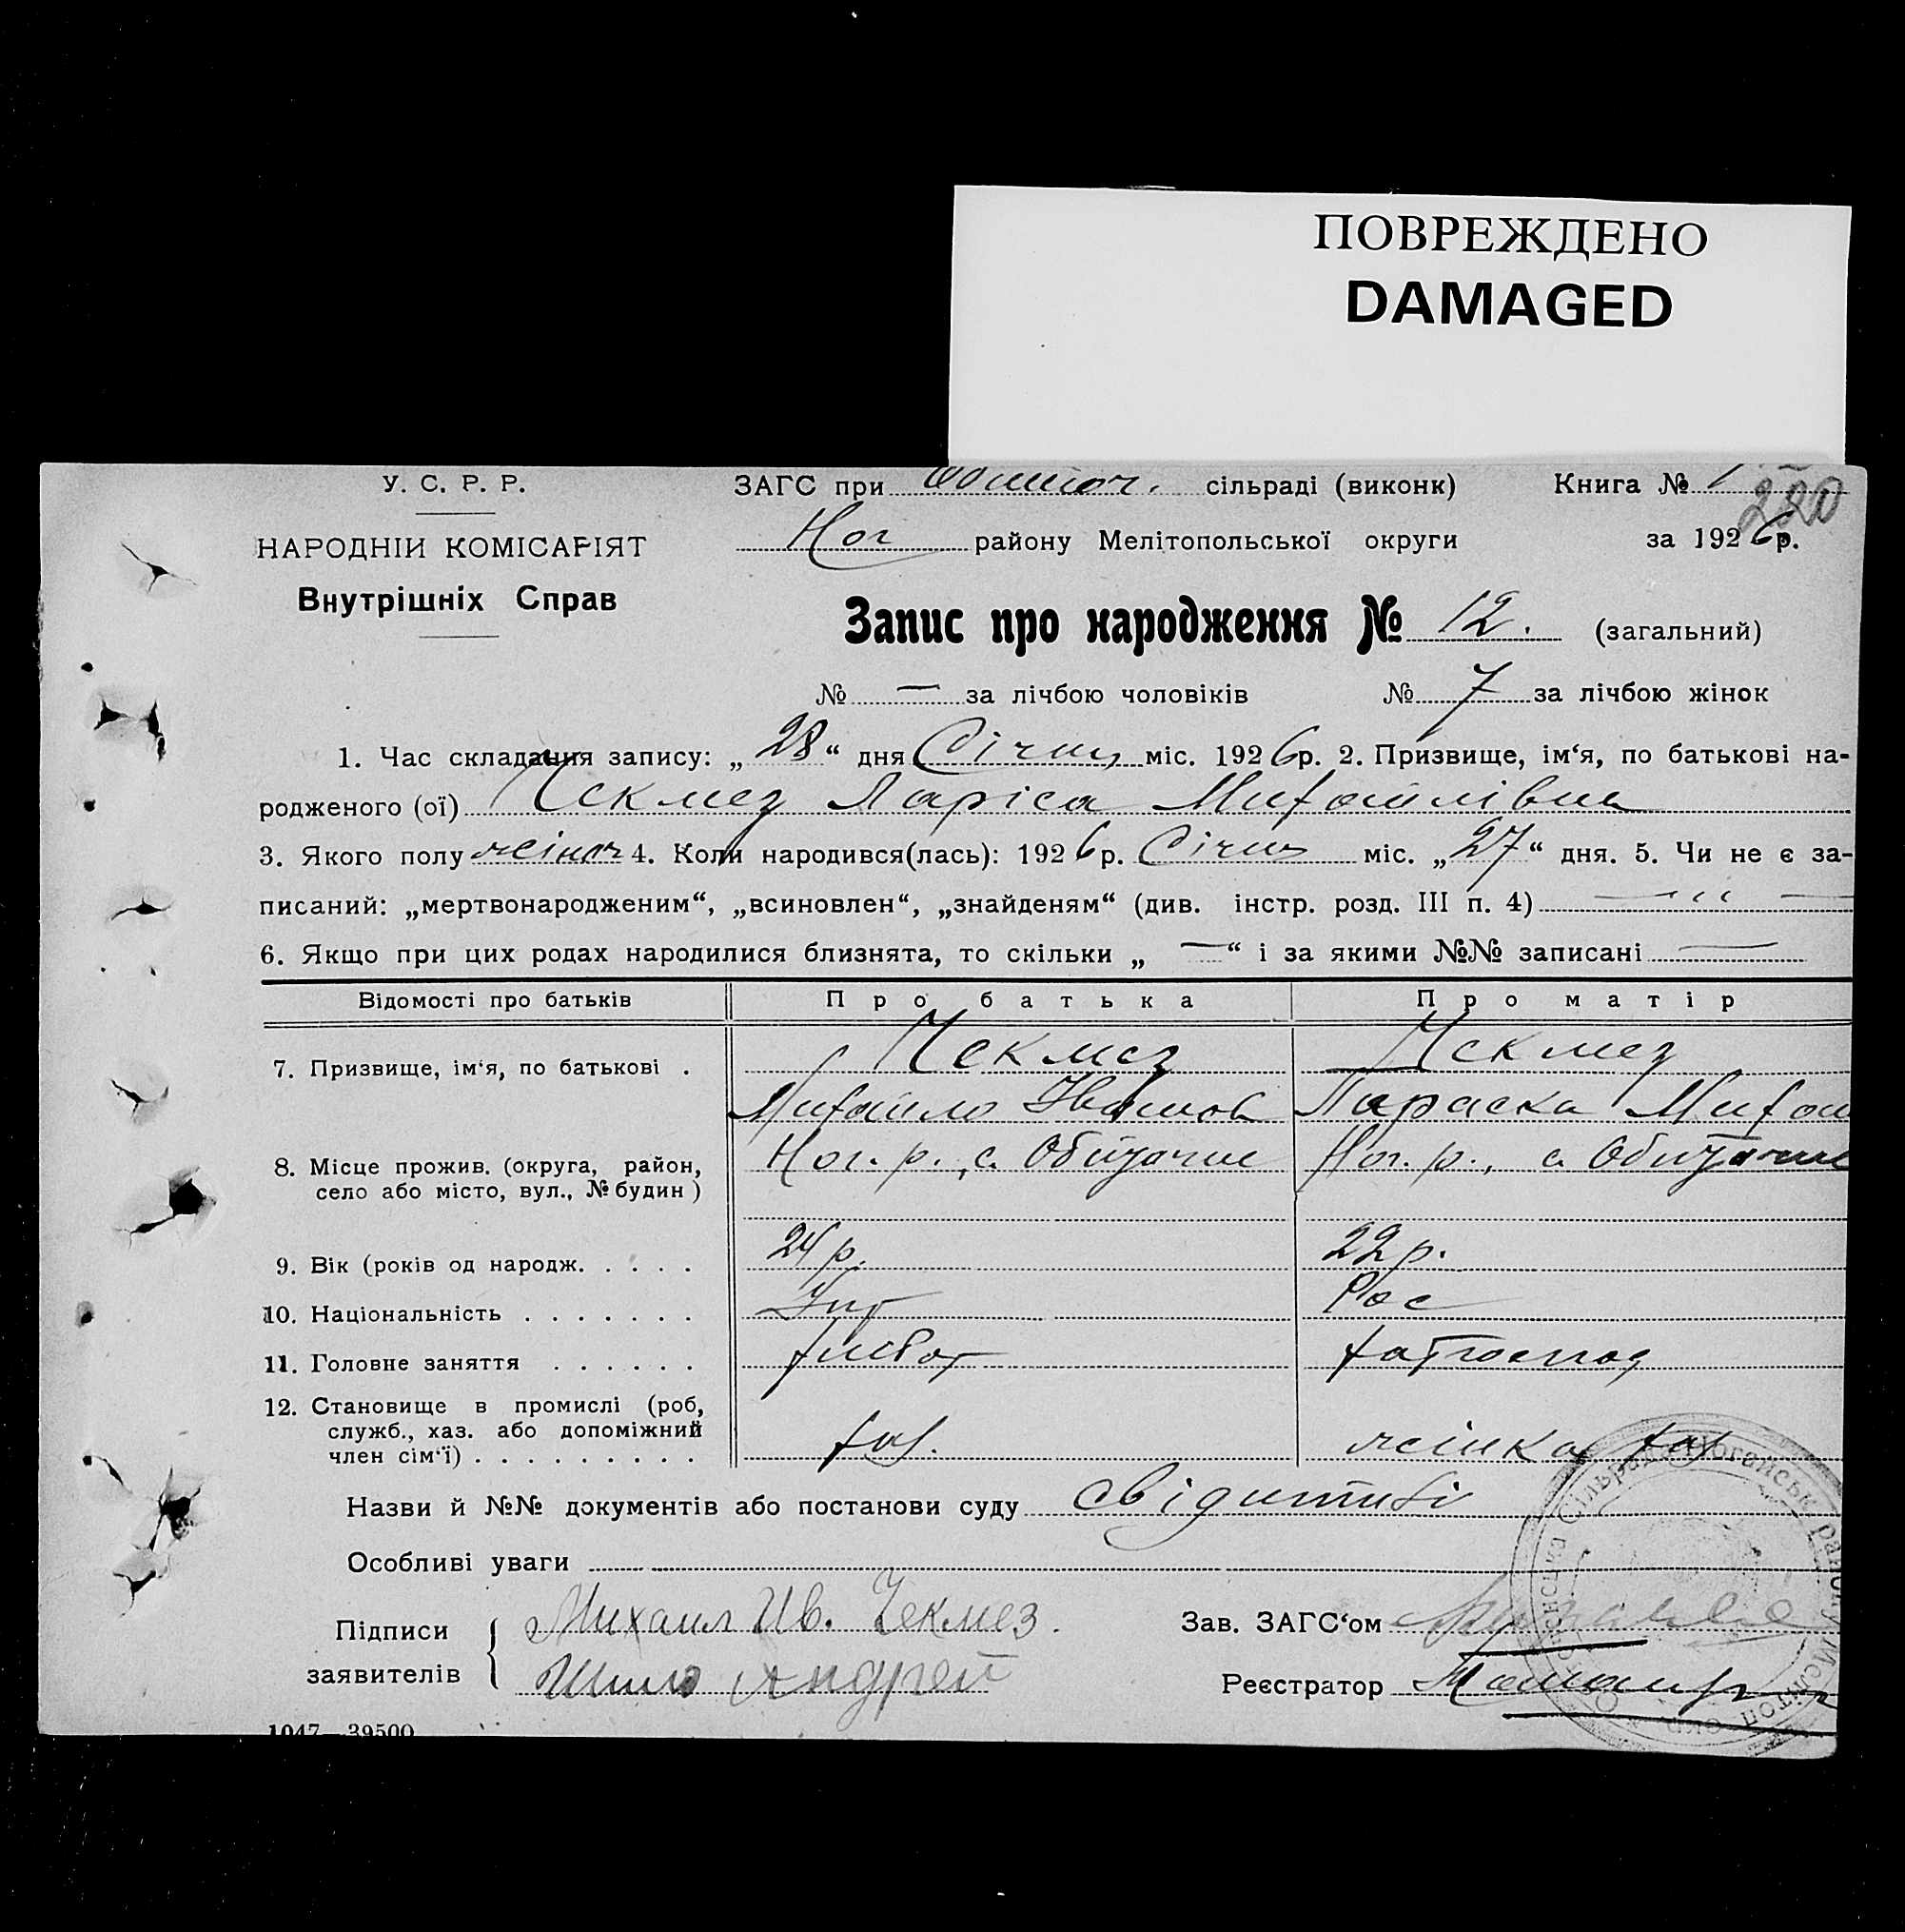 ПОВРЕЖДЕНО
DAMAGED
У. С. Р. Р.
ЗАГС при сільраді (виконк) Книга № 1
220
НАРОДНІЙ КОМІСАРІЯТ
Ног району Мелітопольської округи за 1926р.
Внутрішніх Справ
Запис про народження № 12. (загальний)
№ — за лічбою чоловіків № 7 за лічбою жінок
1. Час складання запису: „28“ дня Січня міс. 1926р. 2. Призвище, ім‘я, по батькові на-
родженого (ої) Чекмез Лариса Михайлівна
3. Якого полу жіноч 4. Коли народився(лась): 1926р. Січня міс. „27“ дня. 5. Чи не є за-
писаний: „мертвонародженим“, „всиновлен“, „знайденям“ (див. інстр. розд. III п. 4) — “ —
6. Якщо при цих родах народилися близнята, то скільки „ — “ і за якими №№ записані —
Відомості про батьків Про батька Про матір
7. Призвище, ім‘я, по батькові . Чекмез Чекмез
Михайло Іванов Параска Михай
8. Місце прожив. (округа, район, Ног. р., с. Обиточне Ног. р., с. Обиточне
село або місто, вул., № будин)
9. Вік (років од народж. . . . . 24 р. 22 р.
10. Національність . . . . . . . Укр Рос
11. Головне заняття . . . . . . хлібор хатгоспод
12. Становище в промислі (роб,
служб., хаз. або допоміжний
член сім‘ї) . . . . . . . . . хаз. жінка хаз
Назви й №№ документів або постанови суду
Особливі уваги
Підписи Михаил Ив. Чекмез.
Зав. ЗАГС‘ом
заявителів Шило Андрей
Реєстратор
1047—39500
Сільрада Ногайськ. району Мелітоп. окр.